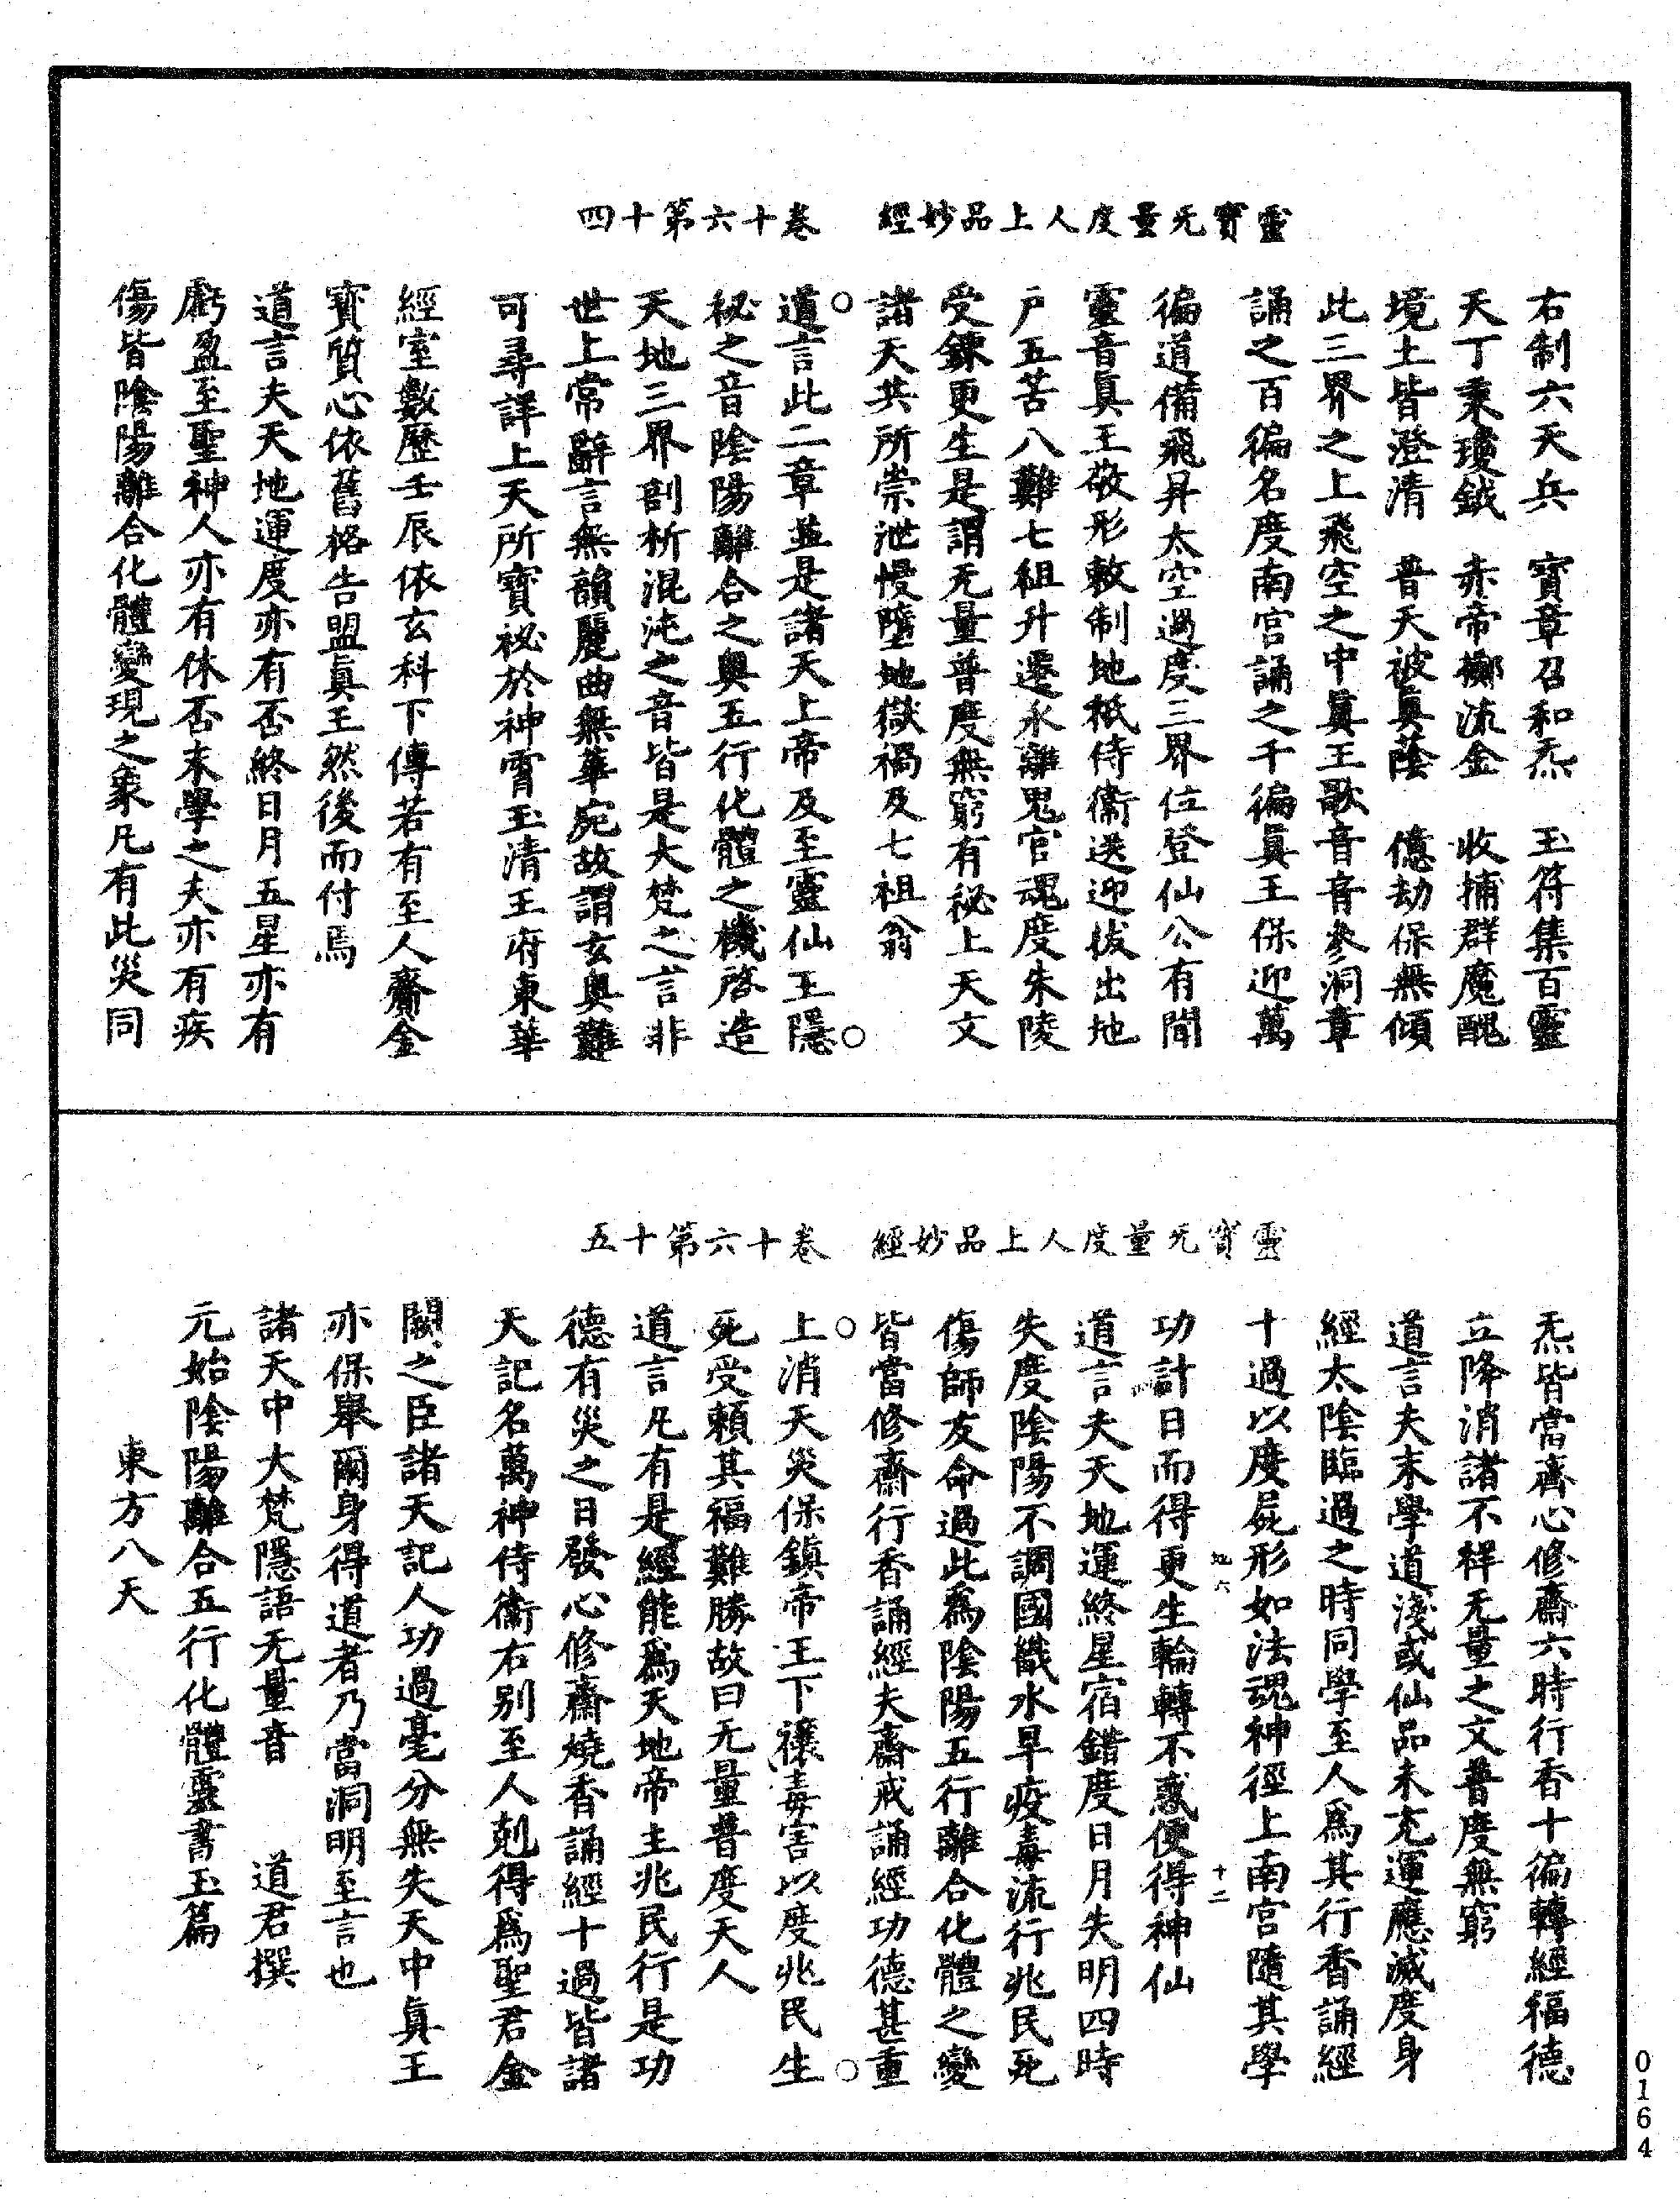 靈寶无量度人上品妙經　卷十六第十四
右制六天兵　寶章召和炁　玉符集百靈
天丁秉瓊鉞　赤帝擲流金　收捕群魔醜
境土皆澄清　普天被真蔭　億劫保無傾
此三界之上飛空之中真王歌音音參洞章
誦之百徧名度南宮誦之千徧真王保迎萬
徧道備飛昇太空過度三界位登仙公有聞
靈音真王敬形敕制地祇侍衛送迎拔出地
戶五苦八難七祖升遷永離鬼官魂度朱陵
受鍊更生是謂无量普度無窮有秘上天文
諸天共所崇泄慢墮地獄禍及七祖翁
道言此二章並是諸天上帝及至靈仙王隱
祕之音陰陽離合之奧五行化體之機啓造
天地三界剖析混沌之音皆是大梵之言非
世上常辭言無韻麗曲無華宛故謂玄奧難
可尋詳上天所寶祕於神霄玉清王府東華
經室數歷壬辰依玄科下傳若有至人齎金
寶質心依舊格告盟真王然後而付焉
道言夫天地運度亦有否終日月五星亦有
虧盈至聖神人亦有休否末學之夫亦有疾
傷皆陰陽離合化體變現之象凡有此災同
靈寶无量度人上品妙經　卷十六第十五
炁皆當齋心修齋六時行香十徧轉經福德
立降消諸不祥无量之文普度無窮
道言夫末學道淺或仙品未充運應滅度身
經太陰臨過之時同學至人爲其行香誦經
十過以度屍形如法魂神徑上南宮隨其學
地六　十二
功計日而得更生輪轉不惑便得神仙
道言夫天地運終星宿錯度日月失明四時
失度陰陽不調國饑水旱疫毒流行兆民死
傷師友命過此爲陰陽五行離合化體之變
皆當修齋行香誦經夫齋戒誦經功德甚重
上消天災保鎮帝王下禳毒害以度兆民生
死受賴其福難勝故曰无量普度天人
道言凡有是經能爲天地帝主兆民行是功
德有災之日發心修齋燒香誦經十過皆諸
天記名萬神侍衛右別至人剋得爲聖君金
闕之臣諸天記人功過毫分無失天中真王
亦保舉爾身得道者乃當洞明至言也
諸天中大梵隱語无量音　　道君撰
元始陰陽離合五行化體靈書玉篇
東方八天
0164